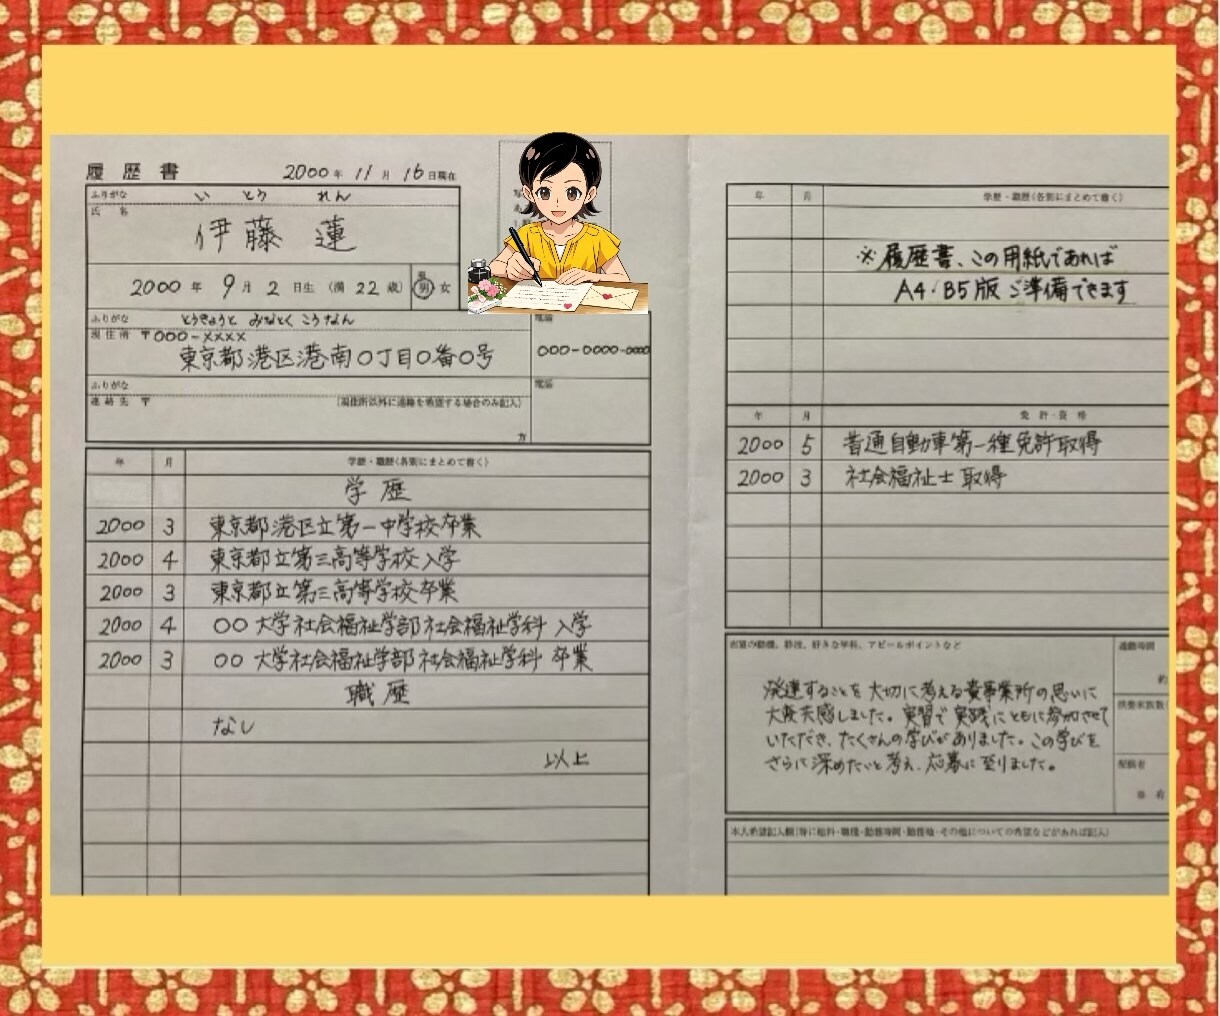 履歴書 2000年 11月 16日現在
ふりがな い とう れん
氏 名
伊藤 蓮
2000年 9月 2日生 (満 22 歳) 男 女
ふりがな とうきょうと みなとく こうなん
現住所 〒000-××××
東京都港区港南〇丁目〇番〇号
電話
000-0000-0000
ふりがな
連絡先 〒 (現住所以外に連絡を希望する場合のみ記入)
方
電話
年 月 学歴・職歴(各別にまとめて書く)
学歴
2000 3 東京都港区立第一中学校卒業
2000 4 東京都立第三高等学校入学
2000 3 東京都立第三高等学校卒業
2000 4 〇〇大学社会福祉学部社会福祉学科 入学
2000 3 〇〇大学社会福祉学部社会福祉学科 卒業
職歴
なし
以上
年 月 学歴・職歴(各別にまとめて書く)
※履歴書、この用紙であれば
A4・B5版ご準備できます
年 月 免許・資格
2000 5 普通自動車第一種免許取得
2000 3 社会福祉士取得
志望の動機、特技、好きな学科、アピールポイントなど
発達することを大切に考える貴事業所の思いに
大変共感しました。実習で実践にともに参加させて
いただき、たくさんの学びがありました。この学びを
さらに深めたいと考え、応募に至りました。
通勤時間
約
扶養家族数(
配偶者
有
本人希望記入欄(特に給料・職種・勤務時間・勤務地・その他についての希望などがあれば記入)